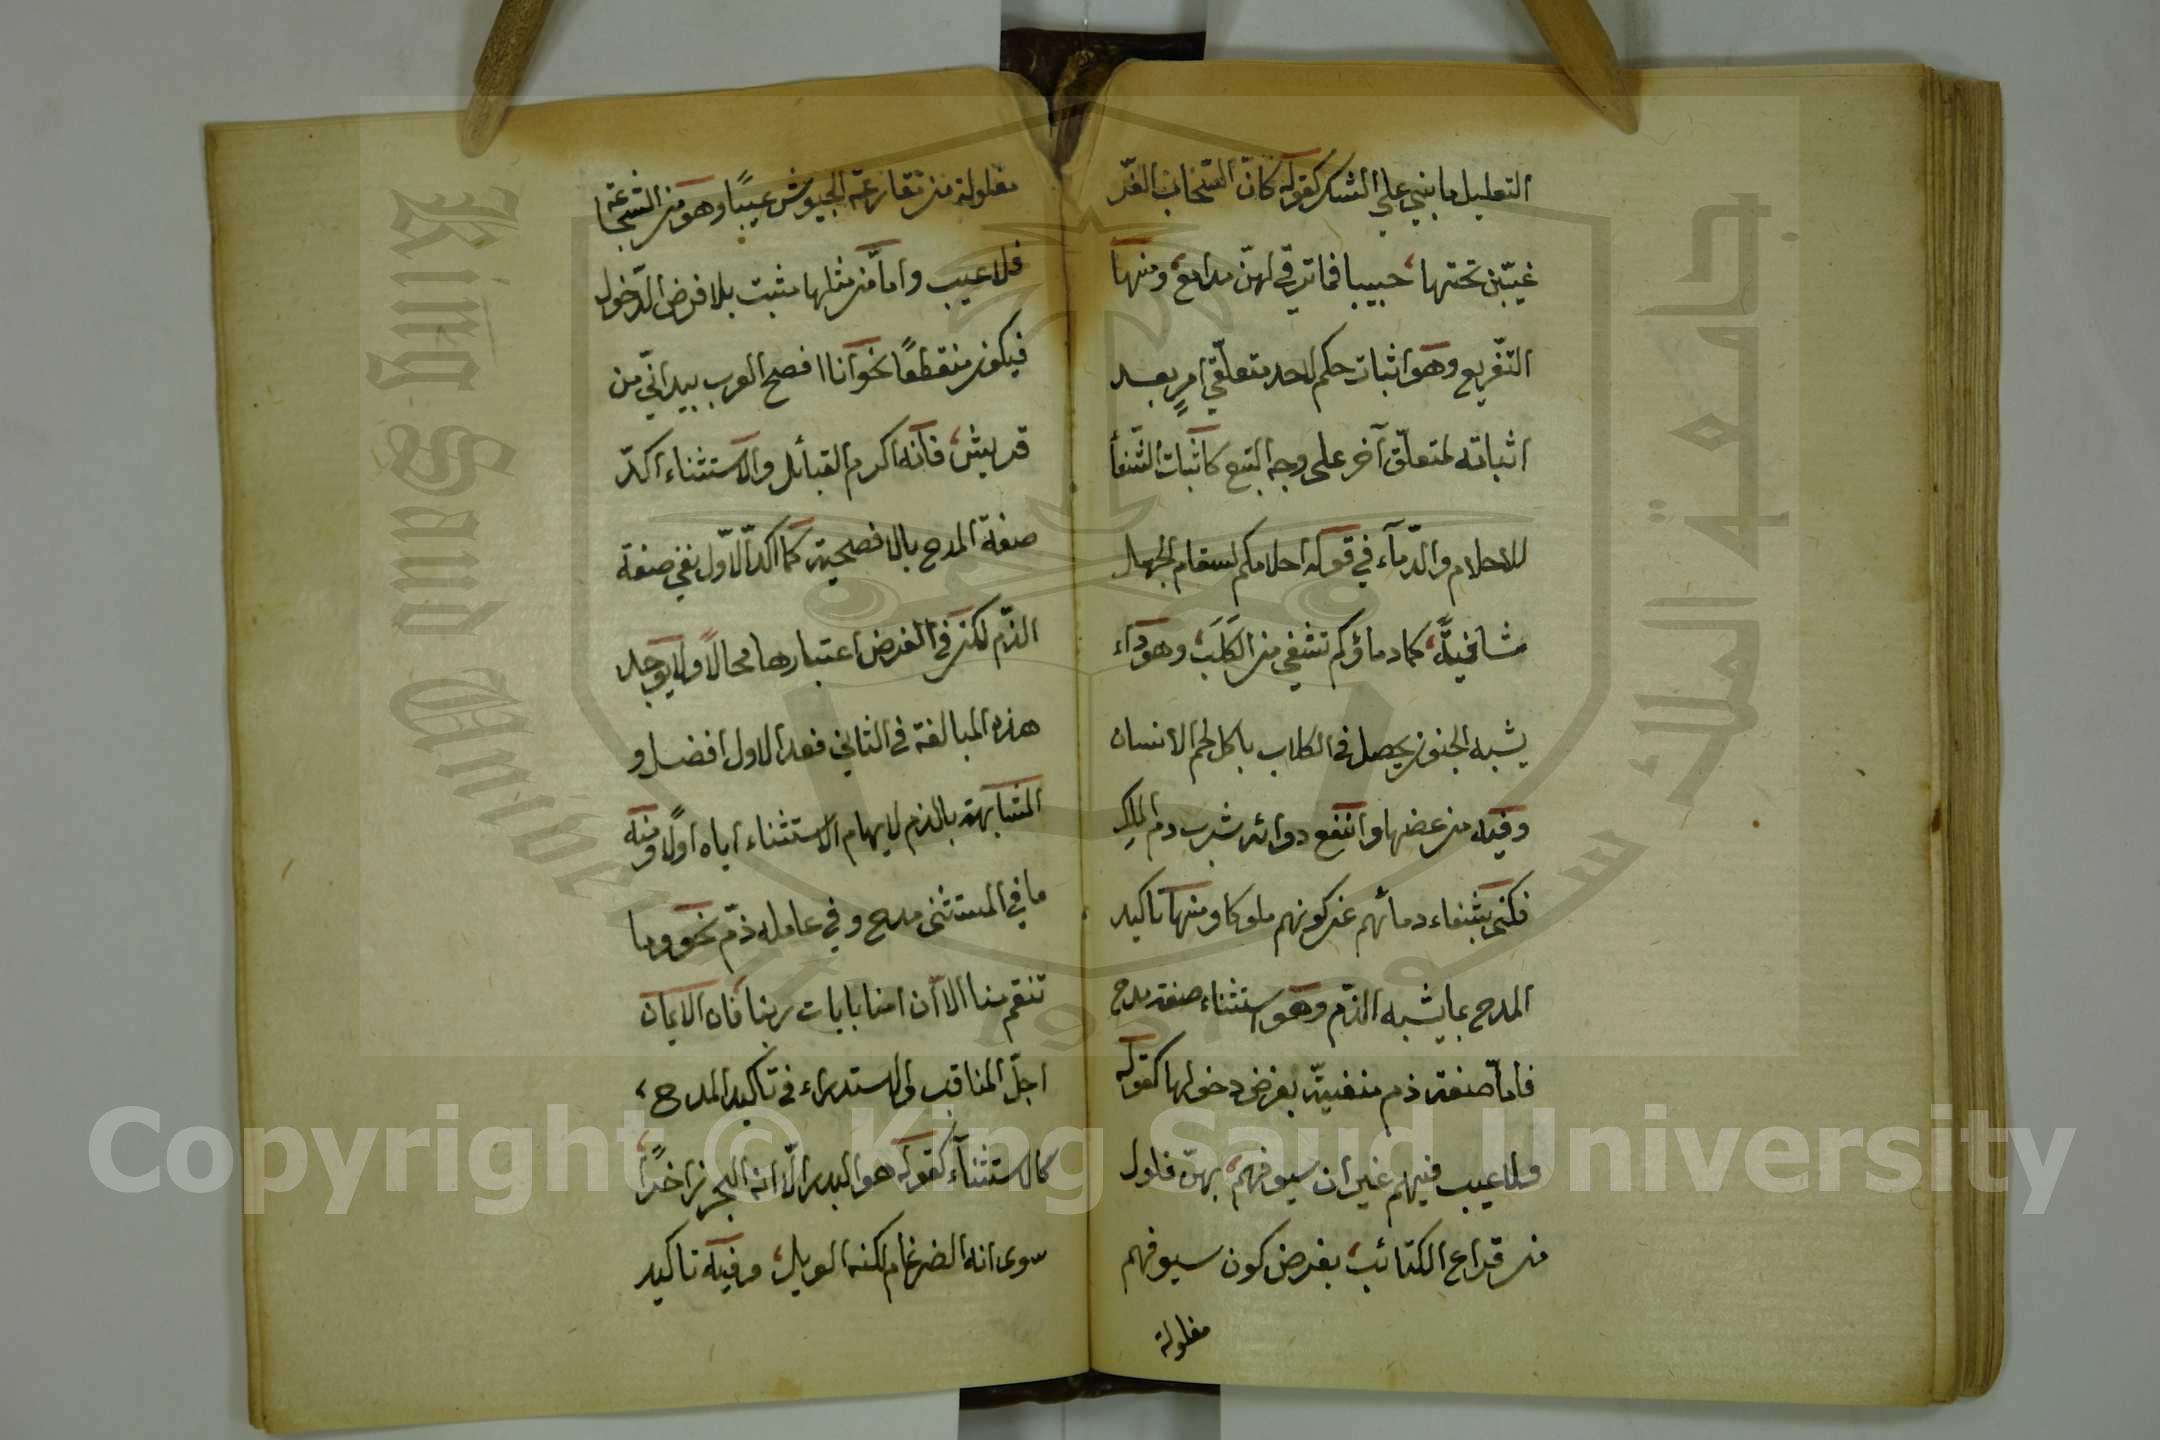 التعليل ما بني على الشك كقوله كانّ السّحاب الغرّ
غيّبن تحتها، حبيبا فما ترقى لهنّ مدامع، ومنها
التّفريع وهو اثبات حكم لاحد متعلّقي امرٍ بعد
اثباته لمتعلّق آخر على وجه التبع كاثبات الشّفأ
للاحلام والدّمآء في قوله احلامكم لسقام الجهل
شافيةً، كما دماؤكم تشفي من الكَلَبِ، وهو داء
يشبه الجنون يحصل في الكلاب باكل لحم الانسان
وفيه من عضها وانفع دوائه شرب دم الملك
فكنى بشفاء دمائهم عن كونهم ملوكا ومنها تاكيد
المدح بما يشبه الذّم وهو استثناء صفة مدح
فامّا صفة ذم منفيّة بفرض دخولها كقوله
ولا عيب فيهم غير ان سيوفهم، بهنّ فلول
من قراع الكتائب، بفرض كون سيوفهم
مفلولة
مفلولة من قارعة الجيوش عيبًا وهو من الشجاعة
فلا عيب وامّا من مثلها مثبت بلا فرض الدّخول
فيكون منقطعًا نحو انا افصح العرب بيد انّي من
قريش، فانه اكرم القبائل والاستثناء اكدّ
صفة المدح بالافصحية كما اكدّ الاوّل نفي صفة
الذّم لكن في الفرض اعتبارها محالا ولا يوجد
هذه المبالغة في الثاني فعد الاول افضل و
المشابهة بالذم لايهام الاستثناء اياه اولًا ومنه
ما في المستثنى مدح وفي عامله ذمّ نحو وما
تنقم منا الا أن امنا بايات ربنا فان الايمان
اجلّ المناقب والاستدراك في تاكيد المدح،
كالاستثنآء كقوله هو البدر الّا انه البحر زاخرًا،
سوى انه الضرغام لكنه الوبل، وفيه تاكيد
Copyright © King Saud University
جامعة الملك سعود
King Saud University
1957